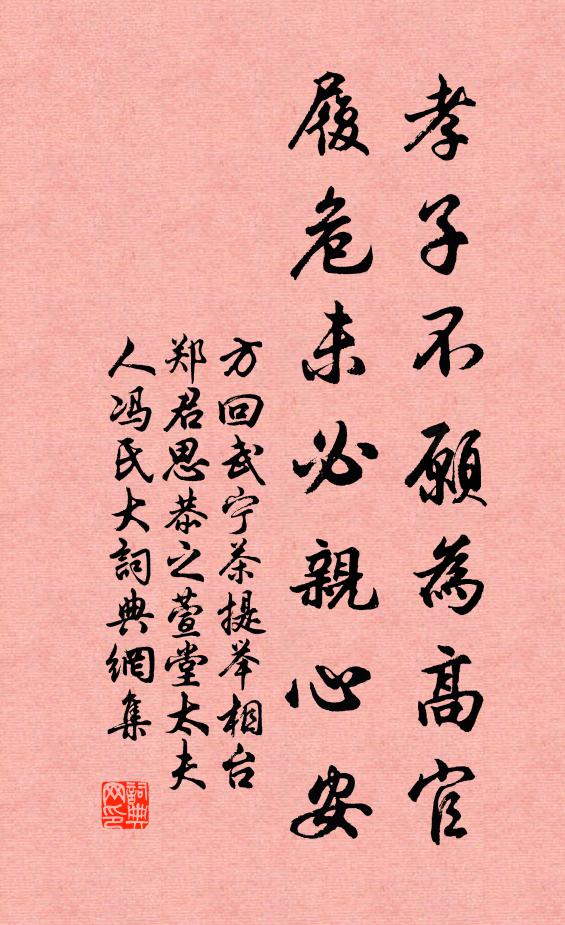 孝子不願為高官
履危未必親心安
方回武宁茶提举相台
郑君思恭之萱堂太夫
人冯氏大詞典網集
詞典网印